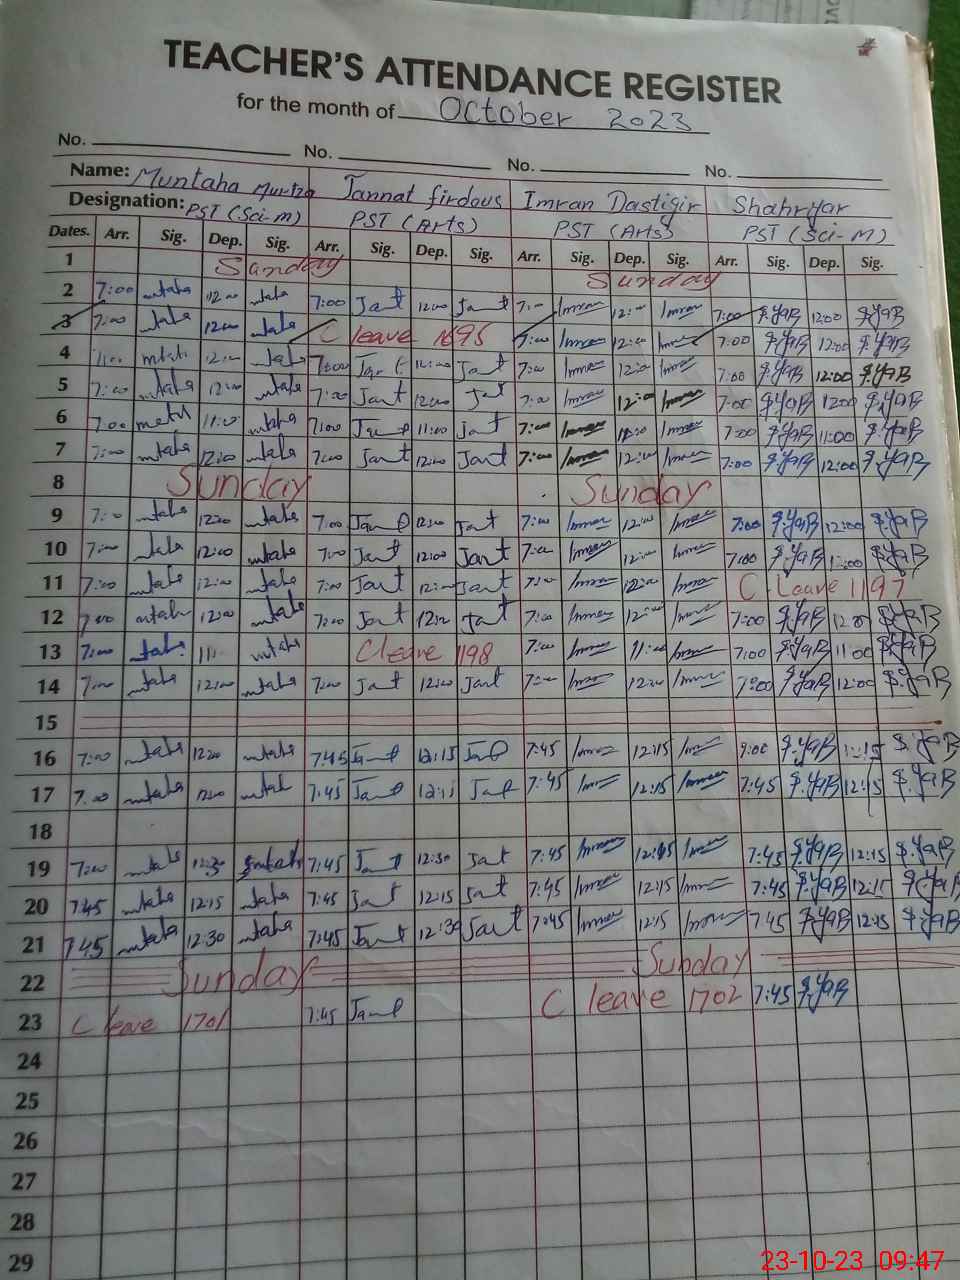 TEACHER'S ATTENDANCE REGISTER
for the month of October 2023
No. No. No. No.
Name: Muntaha Jannat firdous Imran Dastigir Shahryar
Designation: PST (Sci-m) PST (Arts) PST (Arts) PST (Sci-M)
Dates. Arr. Sig. Dep. Sig. Arr. Sig. Dep. Sig. Arr. Sig. Dep. Sig. Arr. Sig. Dep. Sig.
1 Sunday Sunday
2 7:00 mtaha 12:00 mtaha 7:00 Jant 12:00 Jant 7:00 Imran 12:00 Imran 7:00 S.YaR 12:00 S.YaR
3 7:00 12:00 C leave 7:00 Imran 12:00 7:00 S.YaR 12:00 S.YaR
4 12:00 7:00 7:00 Imran 12:00 7:00 S.YaR 12:00 S.YaR
5 7:00 mtaha 12:00 mtaha 7:00 Jant 12:00 7:00 Imran 12:00 Imran 7:00 S.YaR 12:00 S.YaR
6 7:00 11:00 mtaha 7:00 11:00 Jant 7:00 Imran Imran 7:00 S.YaR 11:00 S.YaR
7 7:00 mtaha 12:00 mtaha 7:00 Jant 12:00 Jant 7:00 Imran 12:00 Imran 7:00 S.YaR 12:00 S.YaR
8 Sunday Sunday
9 7:00 mtaha 12:00 mtaha 7:00 12:00 Jant 7:00 Imran 12:00 Imran 7:00 S.YaR 12:00 S.YaR
10 7:00 12:00 mtaha 7:00 Jant 12:00 Jant 7:00 Imran 12:00 Imran 7:00 S.YaR 12:00 S.YaR
11 7:00 12:00 mtaha 7:00 Jant 12:00 Jant 7:00 Imran 12:00 Imran C Leave 1197
12 7:00 mtaha 12:00 mtaha 7:00 Jant 12:00 Jant 7:00 Imran 12:00 Imran 7:00 S.YaR 12:00 S.YaR
13 7:00 mtaha C leave 1198 7:00 Imran 11:00 Imran 7:00 S.YaR 11:00 S.YaR
14 7:00 mtaha 12:00 mtaha 7:00 Jant 12:00 Jant 7:00 Imran 12:00 Imran 7:00 S.YaR 12:00 S.YaR
15
16 7:00 mtaha 12:00 mtaha 7:45 12:15 7:45 Imran 12:15 Imran S.YaR S.YaR
17 7:00 mtaha 12:00 7:45 7:45 Imran 12:15 Imran 7:45 S.YaR 12:15 S.YaR
18
19 7:00 12:30 7:45 Jant 12:30 Jant 7:45 Imran Imran 7:45 S.YaR 12:15 S.YaR
20 7:45 mtaha 12:15 mtaha 7:45 Jant 12:15 Jant 7:45 Imran 12:15 Imran 7:45 S.YaR 12:15 S.YaR
21 7:45 mtaha 12:30 mtaha 7:45 Jant 12:30 Jant 7:45 Imran 12:15 Imran 7:45 S.YaR 12:15 S.YaR
22 Sunday Sunday
23 C leave 1701 7:45 C leave 1702 7:45 S.YaR
24
25
26
27
28
29
23-10-23 09:47